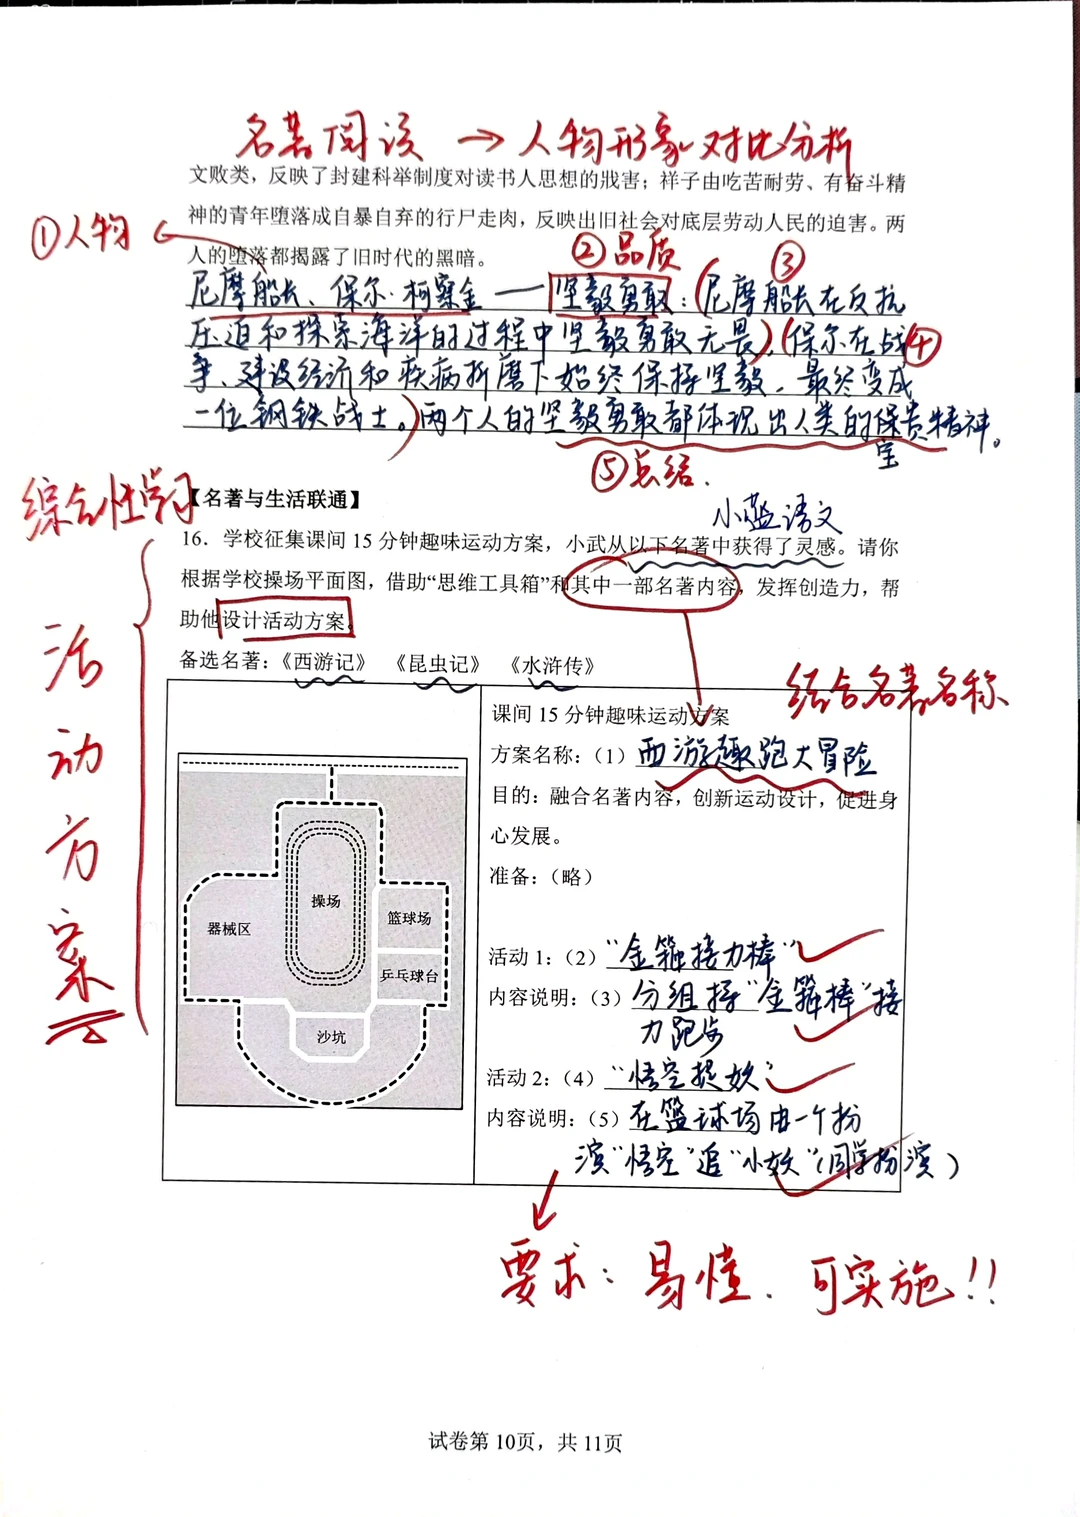 名著阅读 → 人物形象对比分析
文败类，反映了封建科举制度对读书人思想的戕害；祥子由吃苦耐劳、有奋斗精
神的青年堕落成自暴自弃的行尸走肉，反映出旧社会对底层劳动人民的迫害。两
人的堕落都揭露了旧时代的黑暗。
①人物
②品质
③
尼摩船长、保尔·柯察金——坚毅勇敢：（尼摩船长在反抗
压迫和探索海洋的过程中坚毅勇敢无畏），（保尔在战
④
争、建设经济和疾病折磨下始终保持坚毅，最终变成
一位钢铁战士。）两个人的坚毅勇敢都体现出人类的保贵精神。
宝
⑤总结.
综合性学习
【名著与生活联通】
小蓝语文
16．学校征集课间 15 分钟趣味运动方案，小武从以下名著中获得了灵感。请你
根据学校操场平面图，借助“思维工具箱”和其中一部名著内容，发挥创造力，帮
助他设计活动方案。
备选名著：《西游记》 《昆虫记》 《水浒传》
活动方案
结合名著名称
课间 15 分钟趣味运动方案
方案名称：（1）西游趣跑大冒险
目的：融合名著内容，创新运动设计，促进身
心发展。
准备：（略）
活动 1：（2）“金箍接力棒”
内容说明：（3）分组持“金箍棒”接
力跑步
活动 2：（4）“悟空捉妖”
内容说明：（5）在篮球场由一个扮
演“悟空”追“小妖”（同学扮演）
操场
器械区
篮球场
乒乓球台
沙坑
要求：易懂、可实施!!
试卷第 10页，共 11页